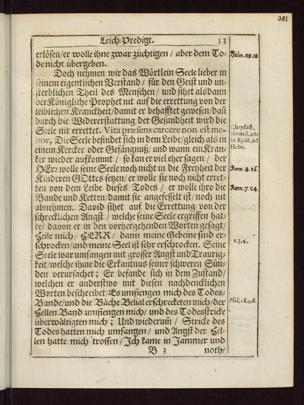 381
Leich-Predigt. 13
erlösen/er wolle ihne zwar züchtigen / aber dem To-
de nicht übergeben.
Doch nehmen wir das Wörtlein Seele lieber in
seinem eigentlichen Verstand / für den Geist und un-
sterblichen Theil des Menschen / und sihet als dann
der Königliche Prophet nit auf die errettung von der
leiblichen Kranckheit/damit er behafftet gewesen/daß
durch die Widererstattung der Gesundheit wird die
Seele nit errettet. Vita præsens carcere non est me-
lior, Die Seele befindet sich in dem Leibe/gleich als in
einem Kercker oder Gefängnüß/und wann ein Kran-
cker wieder aufkommt / so kan er viel eher sagen / der
HErr wolle seine Seele noch nicht in die Freyheit der
Kinderen GOttes setzen/er wolle sie noch nicht erret-
ten von dem Leibe dieses Todes / er wolle ihro die
Bande und Ketten/damit sie angefesselt ist/noch nit
abnehmen. David sihet auf die Errettung von der
schrecklichen Angst / welche seine Seele ergriffen hat-
te/ davon er in den vorhergehenden Worten gesagt/
Heile mich / HERR / dann meine Gebeine sind er-
schrocken/und meine Seel ist sehr erschrocken. Seine
Seele war umfangen mit grosser Angst und Traurig-
keit/welche ihme die Erkantnus seiner schweren Sün-
den verursachet; Er befande sich in dem Zustand/
welchen er anderstwo mit diesen nachdencklichen
Worten beschreibet/Es umfiengen mich des Todes-
Bande/und die Bäche Belial erschreckten mich/der
Hellen Band umfiengen mich/und des Todesstricke
überwältigten mich; Und wiederum/ Stricke des
Todes hatten mich umfangen / und Angst der Hel-
len hatte mich troffen/Ich kame in Jammer und
B 3 noth/
Psalm. 118. 18
Chrysost.
Rom. 8. 21.
Rom. 7. 24.
v. 3. 4.